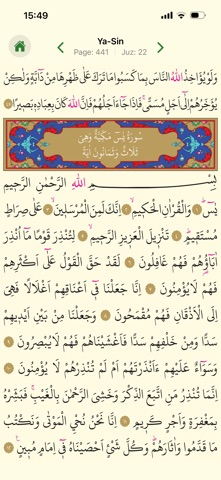 15:49
Ya-Sin
Page: 441 Juz: 22
وَلَوْ يُؤَاخِذُ اللّٰهُ النَّاسَ بِمَا كَسَبُوا مَا تَرَكَ عَلٰى ظَهْرِهَا مِنْ دَٓابَّةٍ وَلٰكِنْ
يُؤَخِّرُهُمْ اِلٰٓى اَجَلٍ مُسَمًّىۚ فَاِذَا جَٓاءَ اَجَلُهُمْ فَاِنَّ اللّٰهَ كَانَ بِعِبَادِهٖ بَصٖيرًا
سُورَةُ يٰسٓ مَكِّيَّةٌ وَهِيَ
ثَلَاثٌ وَثَمَانُونَ اٰيَةً
بِسْمِ اللّٰهِ الرَّحْمٰنِ الرَّحٖيمِ
يٰسٓۚ ﴿١﴾ وَالْقُرْاٰنِ الْحَكٖيمِۙ ﴿٢﴾ اِنَّكَ لَمِنَ الْمُرْسَلٖينَۙ ﴿٣﴾ عَلٰى صِرَاطٍ
مُسْتَقٖيمٍۜ ﴿٤﴾ تَنْزٖيلَ الْعَزٖيزِ الرَّحٖيمِۙ ﴿٥﴾ لِتُنْذِرَ قَوْمًا مَٓا اُنْذِرَ
اٰبَٓاؤُ۬هُمْ فَهُمْ غَافِلُونَ ﴿٦﴾ لَقَدْ حَقَّ الْقَوْلُ عَلٰٓى اَكْثَرِهِمْ
فَهُمْ لَا يُؤْمِنُونَ ﴿٧﴾ اِنَّا جَعَلْنَا فٖٓي اَعْنَاقِهِمْ اَغْلَالًا فَهِيَ
اِلَى الْاَذْقَانِ فَهُمْ مُقْمَحُونَ ﴿٨﴾ وَجَعَلْنَا مِنْ بَيْنِ اَيْدٖيهِمْ
سَدًّا وَمِنْ خَلْفِهِمْ سَدًّا فَاَغْشَيْنَاهُمْ فَهُمْ لَا يُبْصِرُونَ ﴿٩﴾
وَسَوَٓاءٌ عَلَيْهِمْ ءَاَنْذَرْتَهُمْ اَمْ لَمْ تُنْذِرْهُمْ لَا يُؤْمِنُونَ ﴿١٠﴾
اِنَّمَا تُنْذِرُ مَنِ اتَّبَعَ الذِّكْرَ وَخَشِيَ الرَّحْمٰنَ بِالْغَيْبِۚ فَبَشِّرْهُ
بِمَغْفِرَةٍ وَاَجْرٍ كَرٖيمٍ ﴿١١﴾ اِنَّا نَحْنُ نُحْيِ الْمَوْتٰى وَنَكْتُبُ
مَا قَدَّمُوا وَاٰثَارَهُمْۜ وَكُلَّ شَيْءٍ اَحْصَيْنَاهُ فٖٓي اِمَامٍ مُبٖينٍ۟ ﴿١٢﴾